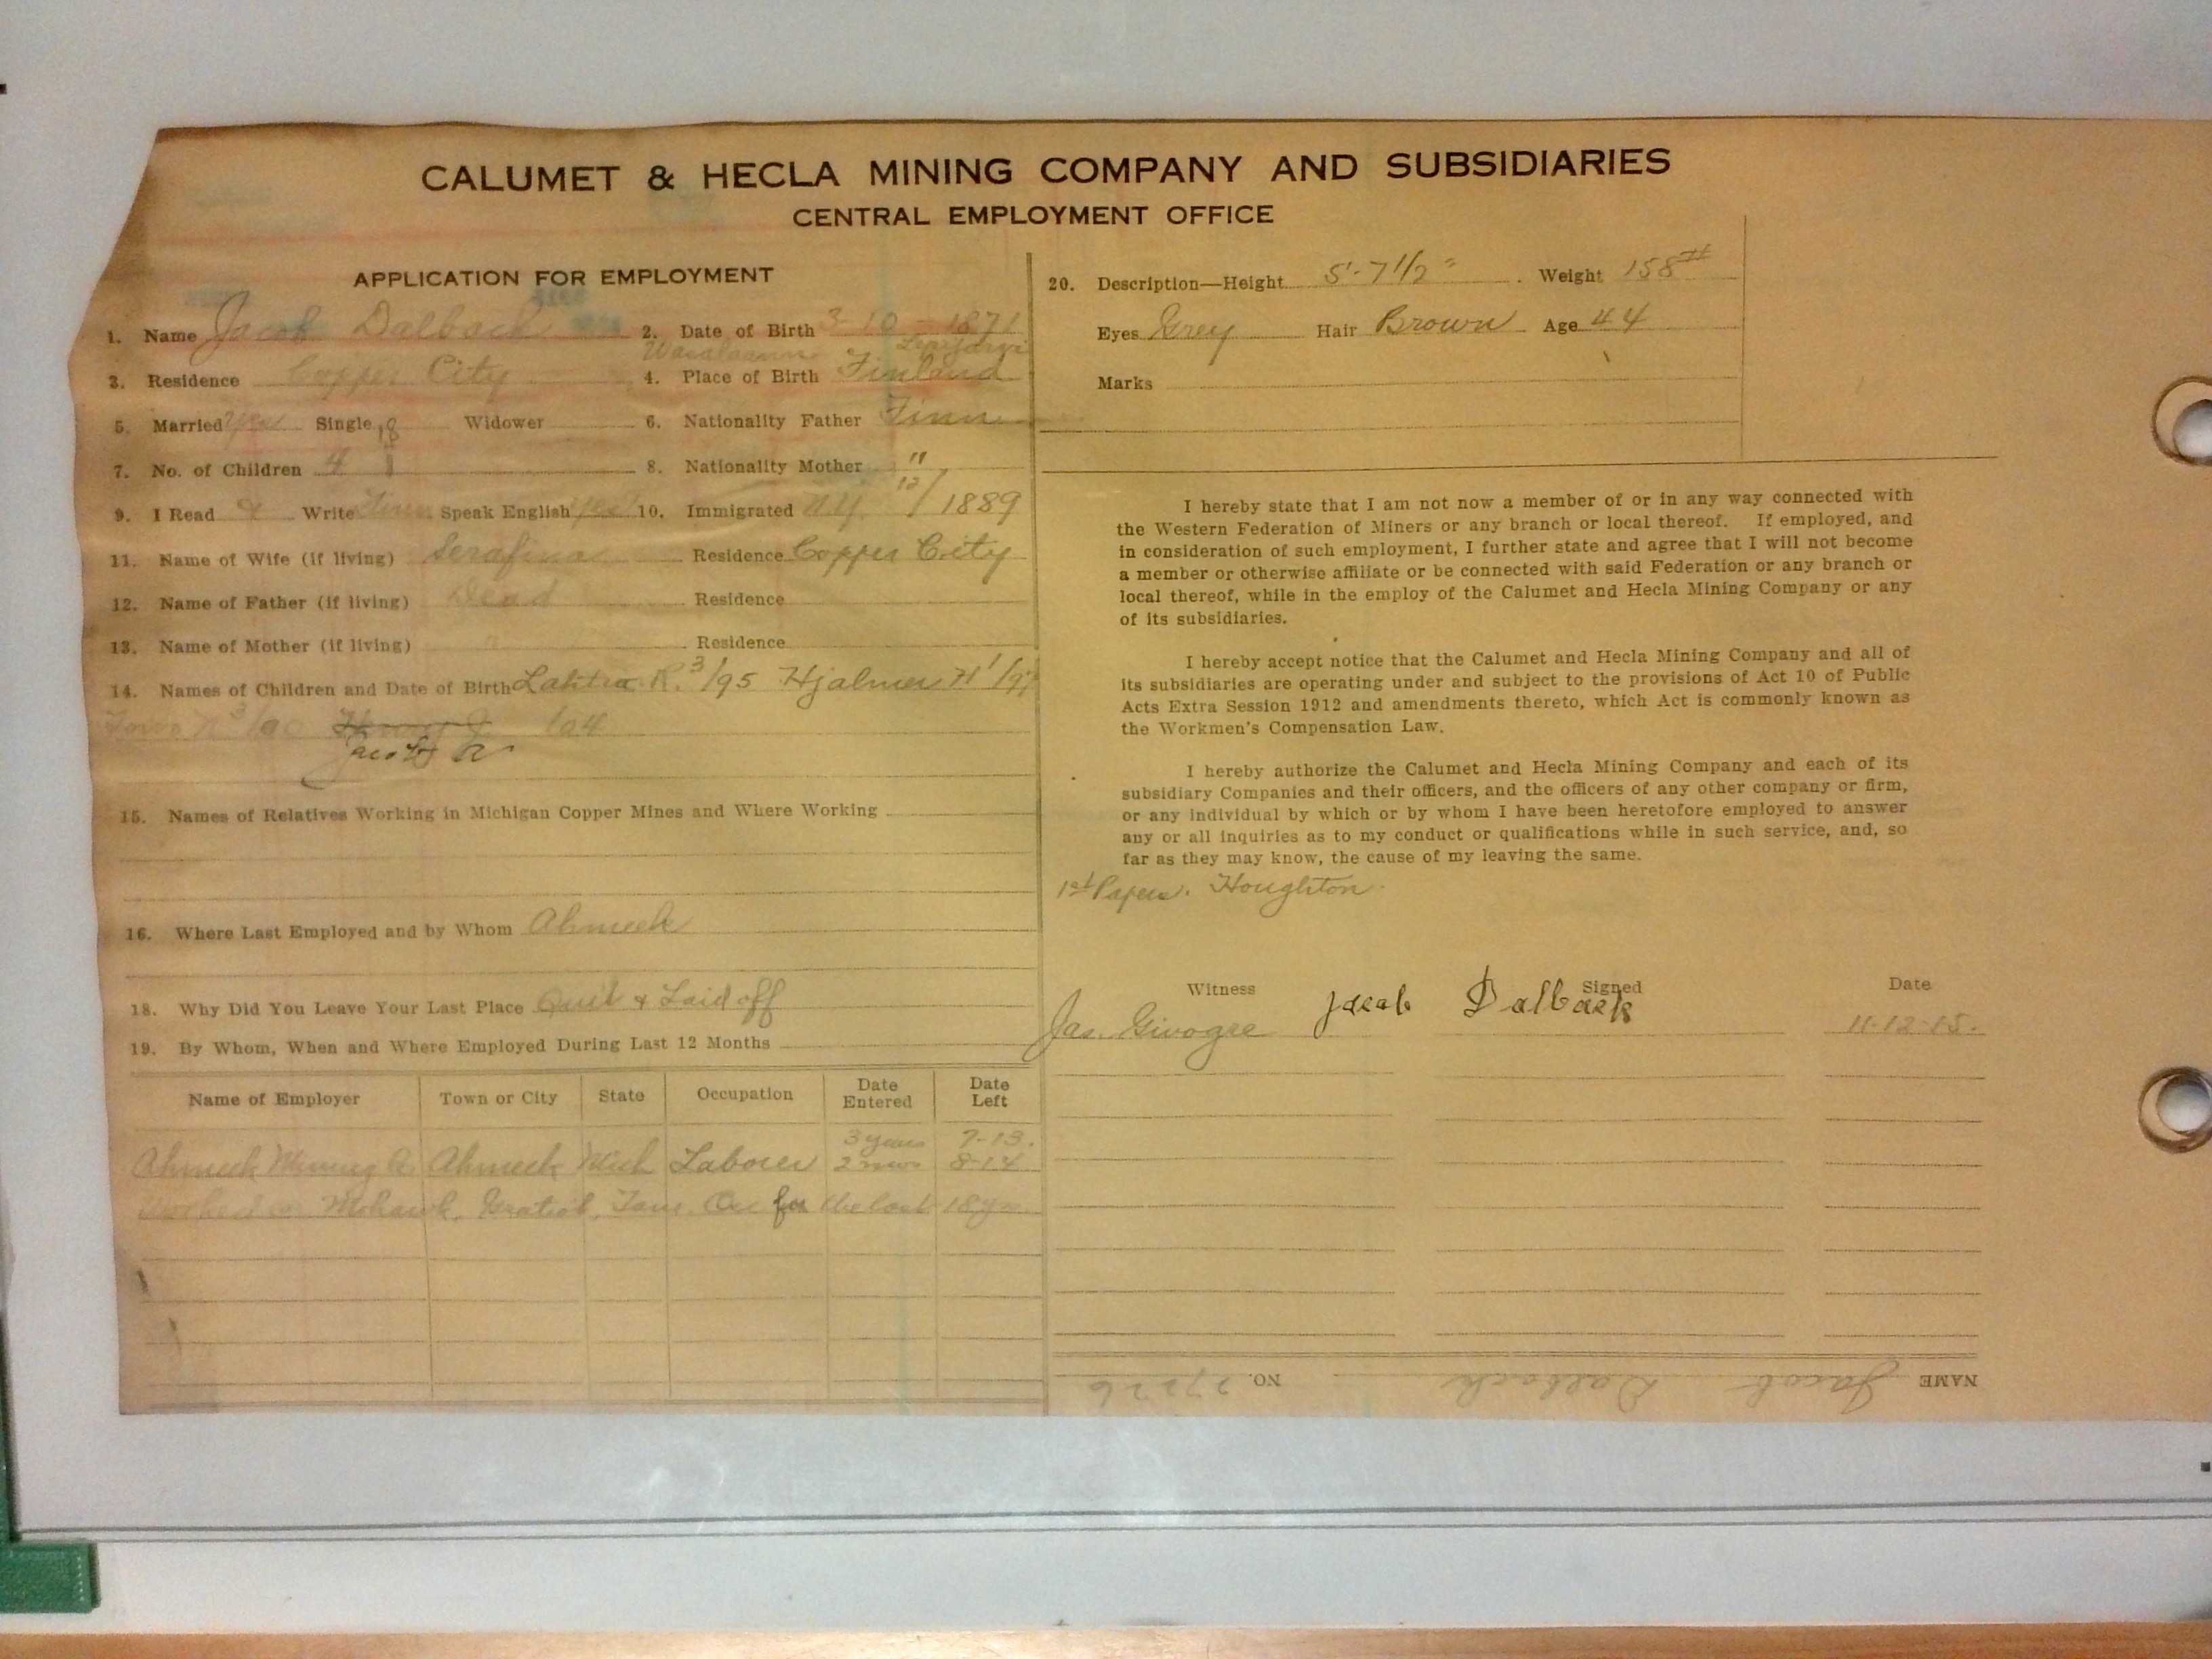 CALUMET & HECLA MINING COMPANY AND SUBSIDIARIES
CENTRAL EMPLOYMENT OFFICE
APPLICATION FOR EMPLOYMENT
1. Name Jacob Dalback 2. Date of Birth 3-10-1871
3. Residence Copper City 4. Place of Birth Finland
5. Married Yes Single Widower 6. Nationality Father Finn
7. No. of Children 4 8. Nationality Mother "
9. I Read & Write Finn Speak English yes 10. Immigrated N.Y. 12/1889
11. Name of Wife (if living) Serafina Residence Copper City
12. Name of Father (if living) Dead Residence
13. Name of Mother (if living) " Residence
14. Names of Children and Date of Birth R. 3/95 Hjalmer H 1/97
/04
Jacob R
15. Names of Relatives Working in Michigan Copper Mines and Where Working
16. Where Last Employed and by Whom Ahmeek
18. Why Did You Leave Your Last Place Quit & Laid off
19. By Whom, When and Where Employed During Last 12 Months
Name of Employer Town or City State Occupation Date Entered Date Left
3 years 7-13.
Ahmeek Mining Co Ahmeek Mich Laborer 2 mos 8-14
Worked at Mohawk, Gratiot, Tam. Osc for the last 18 yrs.
20. Description—Height 5'-7 1/2" Weight 158#
Eyes Grey Hair Brown Age 44
Marks
I hereby state that I am not now a member of or in any way connected with
the Western Federation of Miners or any branch or local thereof. If employed, and
in consideration of such employment, I further state and agree that I will not become
a member or otherwise affiliate or be connected with said Federation or any branch or
local thereof, while in the employ of the Calumet and Hecla Mining Company or any
of its subsidiaries.
I hereby accept notice that the Calumet and Hecla Mining Company and all of
its subsidiaries are operating under and subject to the provisions of Act 10 of Public
Acts Extra Session 1912 and amendments thereto, which Act is commonly known as
the Workmen's Compensation Law.
I hereby authorize the Calumet and Hecla Mining Company and each of its
subsidiary Companies and their officers, and the officers of any other company or firm,
or any individual by which or by whom I have been heretofore employed to answer
any or all inquiries as to my conduct or qualifications while in such service, and, so
far as they may know, the cause of my leaving the same.
1st Papers. Houghton
Witness Signed Date
Jas. Givogre Jacob Dalback 11-12-15.
NAME Jacob Dalback NO. 27226